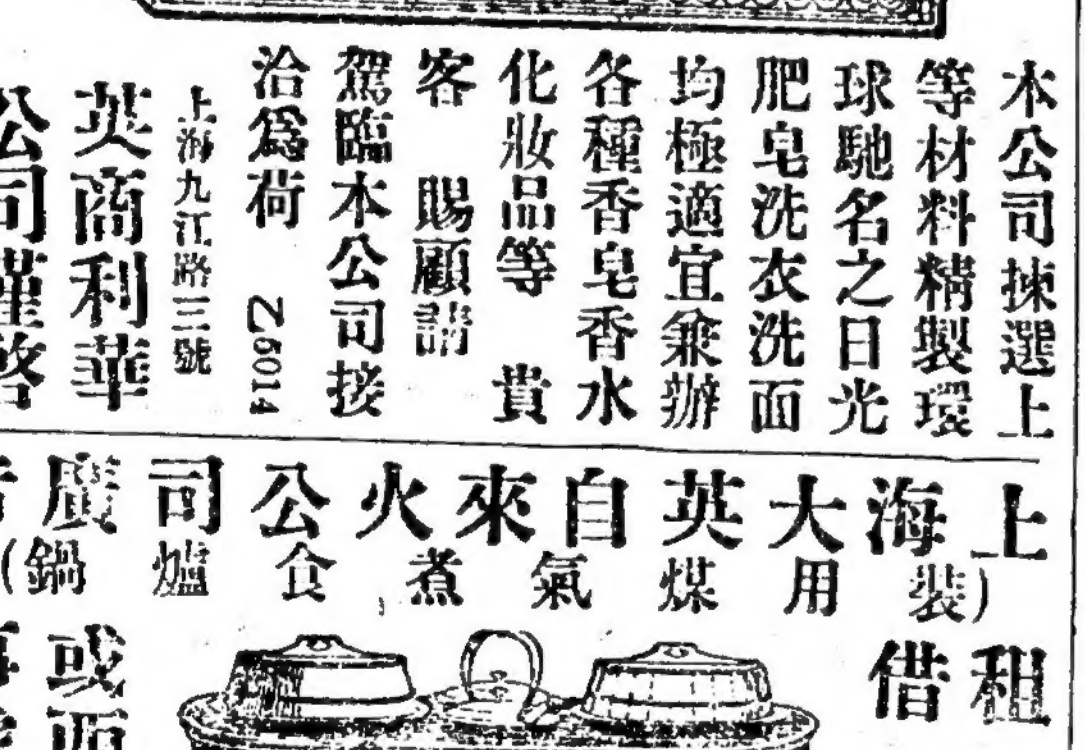 本公司揀選上
等材料精製環
球馳名之日光
肥皂洗衣洗面
均極適宜兼辦
各種香皂香水
化妝品等　貴
客　賜顧請
駕臨本公司接
洽爲荷　Z6014
上海九江路三號
英商利華
公司謹啓
上海大英自來火公司廣
(裝用煤氣煮食爐鍋)
租
借
或